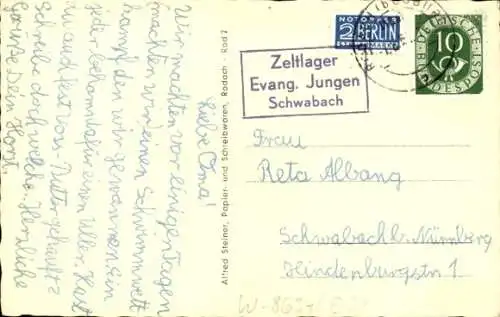 Liebe Oma!
Wir machten vor einigen Tagen
machten wir einen Schwimmwett
kampf den wir gewannen. Ein
jede bekam dafür einen Uller. Hast
du auch fest vor
Schreibe doch welche. Herzliche
Grüße Dein Horst.
Alfred Steiner, Papier- und Schreibwaren, Rodach - Rod 2
NOTOPFER
2 BERLIN
STEUERMARKE
Zeltlager
Evang. Jungen
Schwabach
DEUTSCHE
BUNDESPOST
10
Frau
Reta Albang
Schwabach-Nürnberg
Hindenburgstr 1